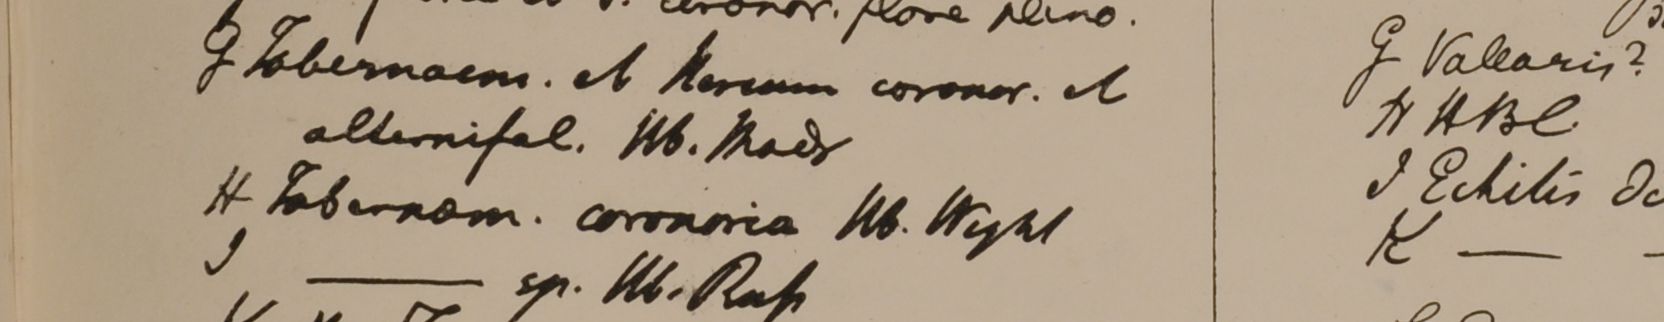 coronar. flore pleno.
G Tabernaem. et Nerium coronar. et
alternifol. Hb. Madr
H Tabernaem. coronaria Hb. Wight
I ——— sp. Hb. Russ
G Vallaris?
H HBC
I Echitis
K —